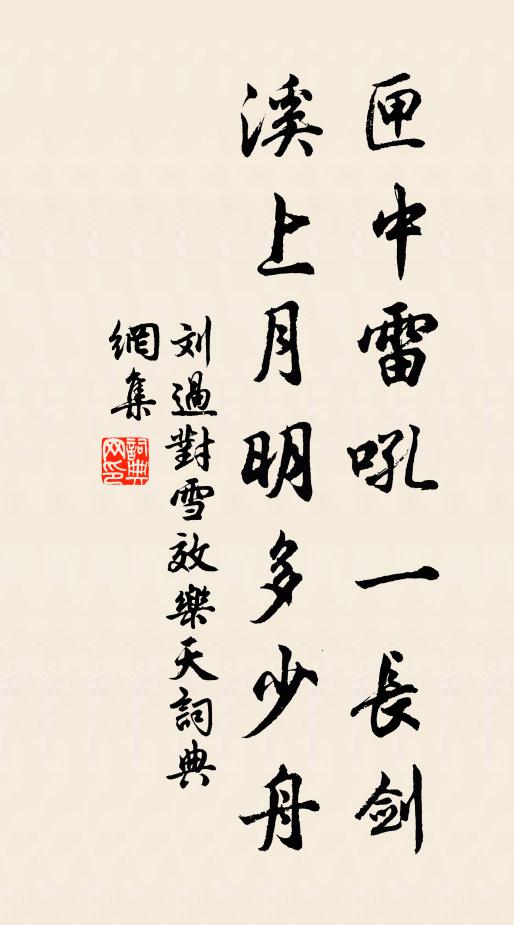 匣中雷吼一長剑
溪上月明多少舟
刘過對雪效樂天詞典
網集
詞典
网印